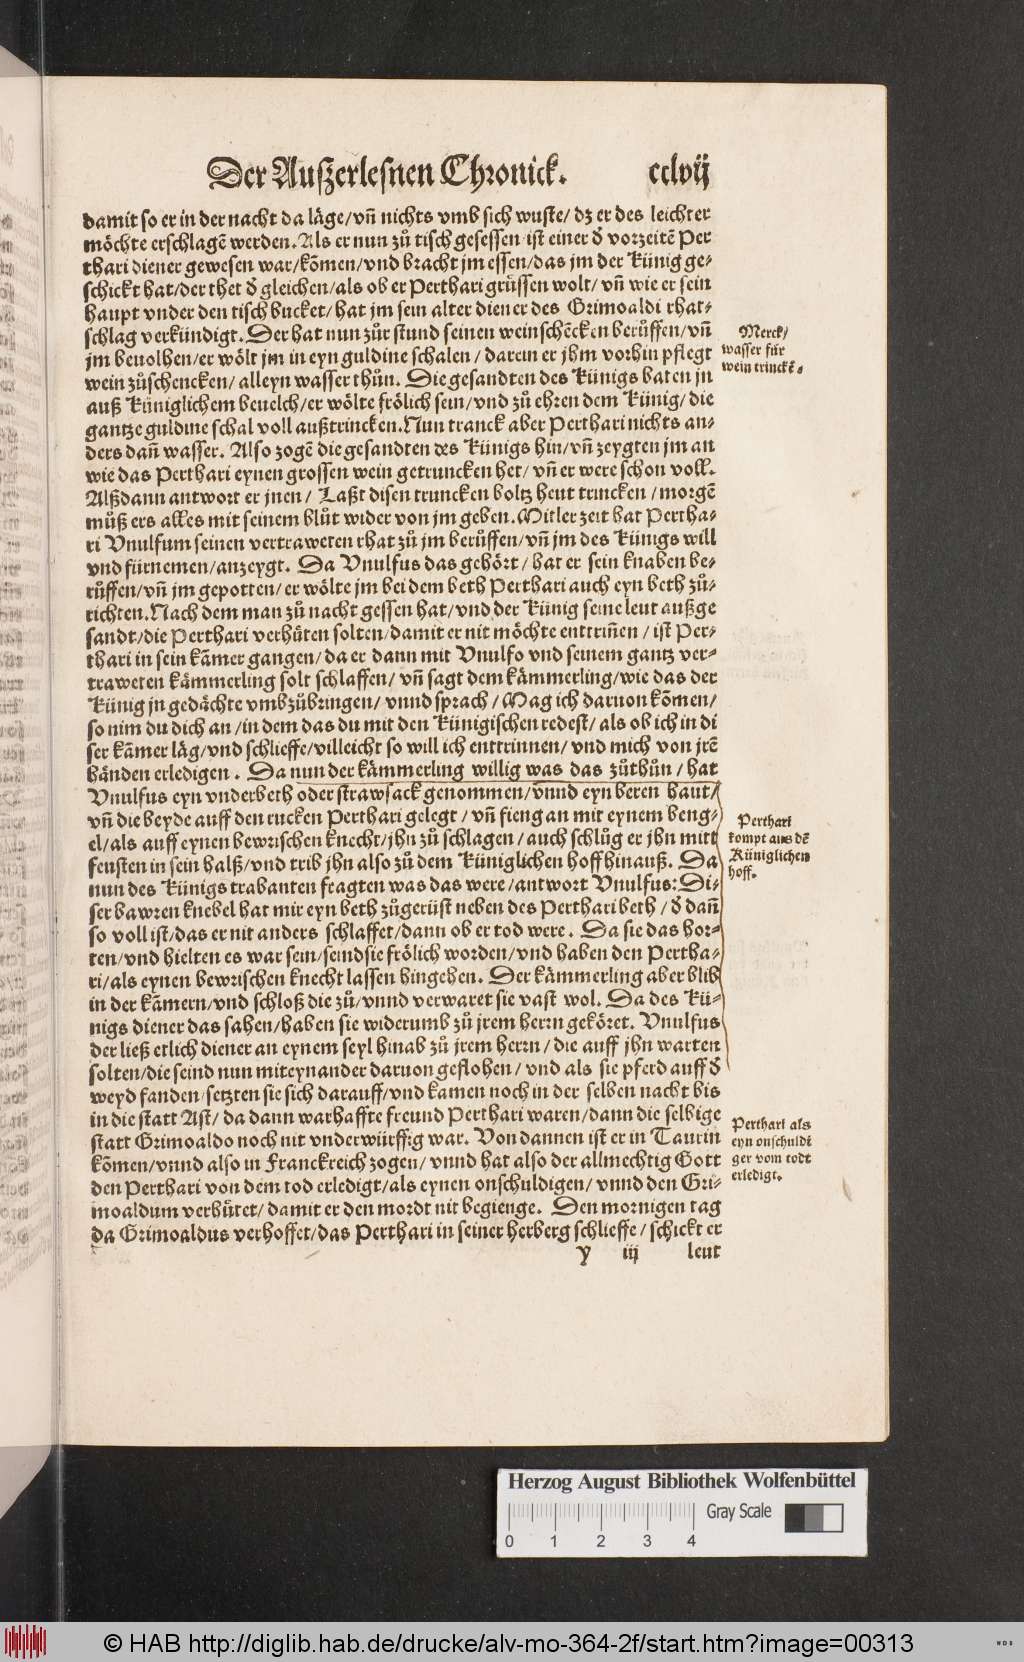 Der Außerlesnen Chronick. cclvij
damit so er in der nacht da läge/vñ nichts vmb sich wuste/ dz er des leichter
möchte erschlagẽ werden. Als er nun zů tisch gesessen ist einer d̕ vorzeitẽ Per
thari diener gewesen war/kõmen/vnd bracht jm essen/das jm der Künig ge-
schickt hat/der thet d̕ gleichen/als ob er Perthari grüssen wolt/ vñ wie er sein
haupt vnder den tisch bucket/hat jm sein alter diener des Grimoaldi rhat-
schlag verkündigt. Der hat nun zůr stund seinen weinschẽcken berůffen/vñ
jm beuolhen/er wölt jm in eyn guldine schalen / darein er jhm vorhin pflegt
wein zůschencken/ alleyn wasser thůn. Die gesandten des Künigs baten jn
auß Küniglichem beuelch/er wölte frölich sein/vnd zů ehren dem Künig/ die
gantze guldine schal voll außtrincken. Nun tranck aber Perthari nichts an-
ders dañ wasser. Also zogẽ die gesandten des Künigs hin/vñ zeygten jm an
wie das Perthari eynen grossen wein getruncken het/ vñ er were schon voll.
Alßdann antwort er jnen / Laßt disen truncken boltz heut trincken /morgẽ
můß ers alles mit seinem blůt wider von jm geben. Mitler zeit hat Pertha-
ri Vnulfum seinen vertraweten rhat zů jm berůffen/vñ jm des Künigs will
vnd fürnemen/anzeygt. Da Vnulfus das gehört/ hat er sein knaben be-
růffen/vñ jm gepotten/er wölte jm bei dem beth Perthari auch eyn beth zů-
richten. Nach dem man zů nacht gessen hat/vnd der Künig seine leut außge
sandt/die Perthari verhüten solten/damit er nit möchte enttriñen / ist Per-
thari in sein kãmer gangen/da er dann mit Vnulfo vnd seinem gantz ver-
traweten kämmerling solt schlaffen/ vñ sagt dem kämmerling/wie das der
Künig jn gedächte vmbzůbringen/ vnnd sprach / Mag ich daruon kõmen/
so nim du dich an /in dem das du mit den Künigischen redest/ als ob ich in di
ser kãmer läg/vnd schlieffe/villeicht so will ich enttrinnen/ vnd mich von jrẽ
händen erledigen . Da nun der kämmerling willig was das zůthůn / hat
Vnulfus eyn vnderbeth oder strawsack genommen/vnnd eyn beren haut/
vñ die beyde auff den rucken Perthari gelegt / vñ fieng an mit eynem beng-
el/als auff eynen bewrischen knecht/jhn zů schlagen/ auch schlůg er jhn mitt
feusten in sein halß/vnd trib jhn also zů dem Küniglichen hoff hinauß. Da
nun des Künigs trabanten fragten was das were/antwort Vnulfus: Di-
ser bawren knebel hat mir eyn beth zůgerüst neben des Perthari beth / d̕ dañ
so voll ist/das er nit anders schlaffet/dann ob er tod were. Da sie das hor-
ten/vnd hielten es war sein/seind sie frölich worden/vnd haben den Pertha-
ri/als eynen bewrischen knecht lassen hingehen. Der kämmerling aber blib
in der kãmern/vnd schloß die zů/vnnd verwaret sie vast wol. Da des Kü-
nigs diener das sahen/haben sie widerumb zů jrem herrn geköret. Vnulfus
der ließ etlich diener an eynem seyl hinab zů jrem herrn/ die auff jhn warten
solten/die seind nun miteynander daruon geflohen/ vnd als sie pferd auff d̕
weyd fanden/setzten sie sich darauff/vnd kamen noch in der selben nacht bis
in die statt Ast/ da dann warhaffte freund Perthari waren/dann die selbige
statt Grimoaldo noch nit vnderwürffig war. Von dannen ist er in Taurin
kõmen/vnnd also in Franckreich zogen/ vnnd hat also der allmechtig Gott
den Perthari von dem tod erledigt/als eynen onschuldigen/ vnnd den Gri-
moaldum verhütet/ damit er den mordt nit begienge. Den mornigen tag
da Grimoaldus verhoffet/das Perthari in seiner herberg schlieffe / schickt er
y iij leut
Merck/
wasser für
wein trinckẽ.
Perthari
kompt aus dẽ
Küniglichen
hoff.
Perthari als
eyn onschuldi
ger vom todt
erledigt.
Herzog August Bibliothek Wolfenbüttel
Gray Scale
0 1 2 3 4
© HAB http://diglib.hab.de/drucke/alv-mo-364-2f/start.htm?image=00313